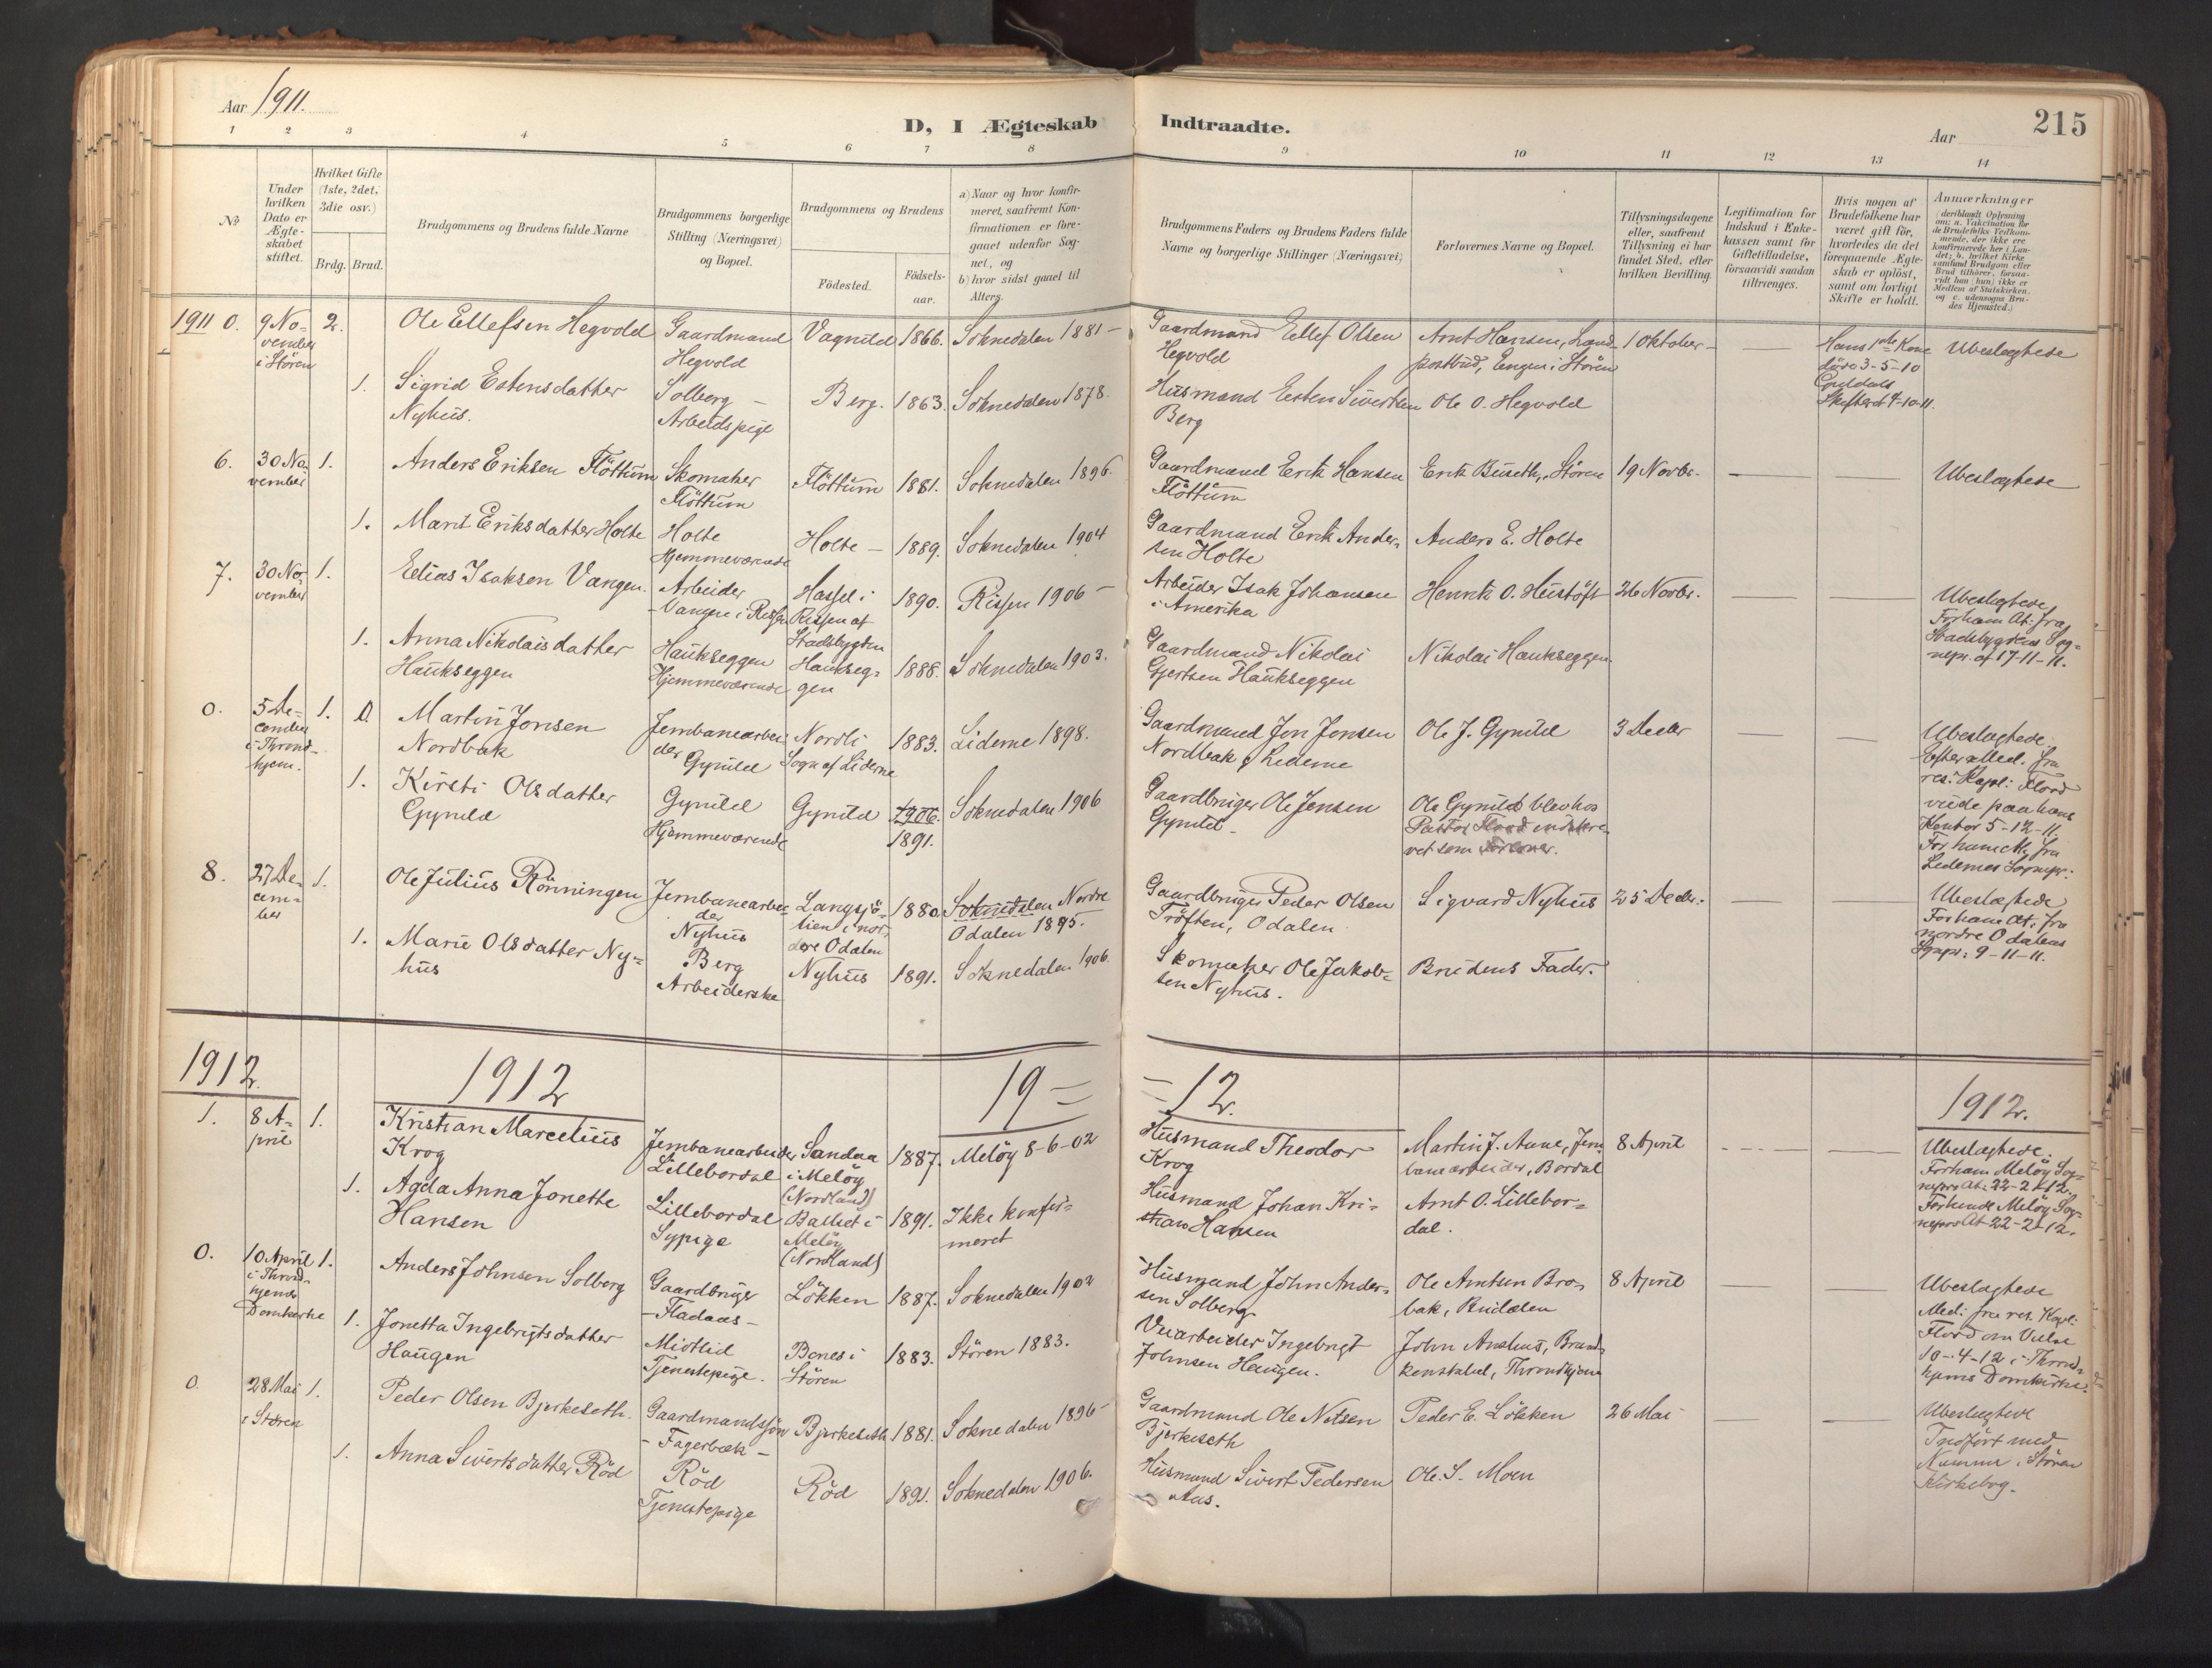 Aar 1911.
D, I Ægteskab Indtraadte.
Aar
215
1 2 3 4 5 6 7 8 9 10 11 12 13 14
No
Under hvilken Dato er Ægteskabet stiftet.
Hvilket Gifte (1ste, 2det, 3die osv.)
Brdg. Brud.
Brudgommens og Brudens fulde Navne
Brudgommens borgerlige Stilling (Næringsvei) og Bopæl.
Brudgommens og Brudens
Födested.
Födselsaar.
a) Naar og hvor konfirmeret, saafremt Konfirmationen er foregaaet udenfor Sognet, og
b) hvor sidst gaaet til Alters.
Brudgommens Faders og Brudens Faders fulde Navne og borgerlige Stillinger (Næringsvei)
Forlovernes Navne og Bopæl.
Tillysningsdagene eller, saafremt Tillysning ei har fundet Sted, efter hvilken Bevilling.
Legitimation for Indskud i Enkekassen samt for Giftetilladelse, forsaavidt saadan tiltrænges.
Hvis nogen af Brudefolkene har været gift för, hvorledes da det foregaaende Ægteskab er oplöst, samt om lovligt Skifte er holdt.
Anmærkninger (deriblandt Oplysning om: a. Vaksination for de Brudefolks Vedkommende, der ikke ere konfirmerede her i Landet; b. hvilket Kirkesamfund Brudgom eller Brud tilhörer, forsaavidt han (hun) ikke er Medlem af Statskirken. og c. udensogns Brudes Hjemsted.)
1911 0. 9 November i Stören 2. Ole Ellefsen Hegvold Gaardmand Hegvold Vagnild 1866. Soknedalen 1881 Gaardmand Ellef Olsen Hegvold Arnt Hansen, Landpostbud, Engen i Stören 1 Oktober Hans 1ste Kone döde 3-5-10 Skifte 4-10-11. Ubeslægtede
1. Sigrid Estensdatter Nyhus. Solberg Arbeidspige Berg. 1863. Soknedalen 1878. Husmand Esten Sivertsen Berg Ole O. Hegvold
6. 30 November 1. Anders Eriksen Flöttum Skomaker Flöttum Flöttum 1881. Soknedalen 1896. Gaardmand Erik Hansen Flöttum Erik Buseth, Stören 19 Novbr. Ubeslægtede
1. Marit Eriksdatter Holte Holte Hjemmeværende Holte 1889. Soknedalen 1904 Gaardmand Erik Andersen Holte Anders E. Holte
7. 30 November 1. Elias Isaksen Vangen. Arbeider Vangen i Rissen Hassel i Rissen af Stadsbygden 1890. Rissen 1906 Arbeider Isak Johansen i Amerika Henrik O. Hustöft 26 Novbr. Ubeslægtede, For ham At. fra Stadsbygdens Sognepr. af 17-11-11.
1. Anna Nikolaisdatter Haukseggen Haukseggen Hjemmeværende Haukseggen 1888. Soknedalen 1903. Gaardmand Nikolai Gjertsen Haukseggen Nikolai Haukseggen
0. 5 December i Throndhjem. 1. Martin Jonsen Nordbak Jernbanearbeider Gynild Nordli Sogn af Liderne 1883. Liderne 1898. Gaardmand Jon Jonsen Nordbak, Lederne Ole J. Gynild 3 Decbr Ubeslægtede. Efter Med. fra res. Kapl: Flord viede paa hans Kontor 5-12-11. For ham At. fra Ledernes Sognepr.
1. Kirsti Olsdatter Gynild Gynild Hjemmeværende Gynild 1906. 1891. Soknedalen 1906 Gaardbruger Ole Jensen Gynild Ole Gynild blev hos Pastor Flord indskrevet som Forlover.
8. 27 December 1. Ole Julius Rönningen Jernbanearbeider Nyhus Langsjölien i nordere Odalen 1880. Soknedalen Nordre Odalen 1895. Gaardbruger Peder Olsen Tröften, Odalen Sigvard Nyhus 25 Decbr. Ubeslægtede For ham At. fra nordre Odalens Sognpr: 9-11-11.
1. Marie Olsdatter Nyhus Berg Arbeiderske Nyhus 1891. Soknedalen 1906. Skomaker Ole Jakobsen Nyhus. Brudens Fader.
1912. 1912 19= =12. 1912.
1. 8 April 1. Kristian Marcelius Krog Jernbanearbeider Lillebordal Sandaa i Melöy (Nordland) 1887. Melöy 8-6-02 Husmand Theodor Krog Martin J. Aune, Jernbanearbeider, Bordal 8 April Ubeslægtede. For ham Melöy Sognepr's At. 22-2-12. For hende Melöy Sognepr's At 22-2-12.
1. Agda Anna Jonette Hansen Lillebordal Sypige i Melöy (Nordland) 1891. Ikke konfirmeret Husmand Johan Kristian Hansen Arnt O. Lillebordal.
0. 10 April i Throndhjems Domkirke 1. Anders Johnsen Solberg Gaardbruger Fladaas Lökken 1887. Soknedalen 1902 Husmand John Andersen Solberg Ole Arntsen Brobak, Budalen 8 April Ubeslægtede Med. fra res. Kapl: Flord om Vielse 10-4-12 i Throndhjems Domkirke.
1. Jonetta Ingebrigtsdatter Haugen Midtlid Tjenestepige. Bones i Stören 1883. Stören 1883. Veiarbeider Ingebrigt Johnsen Haugen. John Anshus, Brandkonstabel, Throndhjem
0. 28 Mai i Stören 1. Peder Olsen Bjerkeseth. Gaardmandssön Fagerbæk Bjerkeseth 1881. Soknedalen 1896 Gaardmand Ole Nilsen Bjerkeseth Peder E. Lökken 26 Mai Ubeslægtede Indført med Nummer i Stören Kirkebog.
1. Anna Sivertsdatter Röd Röd Tjenestepige Röd 1891. Soknedalen 1906. Husmand Sivert Pedersen Aas. Ole. S. Moen